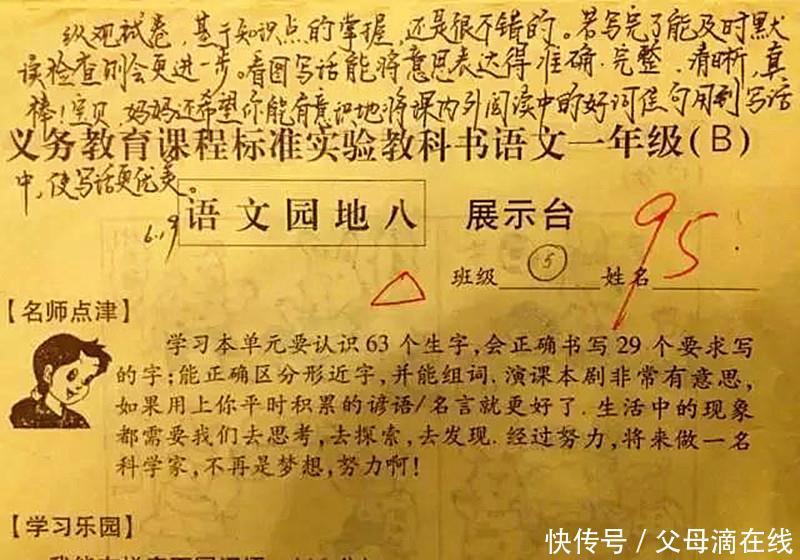 纵观试卷，基于知识点的掌握，还是很不错的。若写完了能及时默
读检查则会更进一步。看图写话能将意思表达得准确、完整、清晰，真
棒！宝贝，妈妈还希望你能有意识地将课内外阅读中的好词佳句用到写话
义务教育课程标准实验教科书语文一年级(B)
中，使写话更优美。
6.19
语文园地八 展示台
95
班级 5 姓名
【名师点津】
学习本单元要认识63个生字,会正确书写29个要求写
的字;能正确区分形近字,并能组词.演课本剧非常有意思,
如果用上你平时积累的谚语/名言就更好了.生活中的现象
都需要我们去思考,去探索,去发现.经过努力,将来做一名
科学家,不再是梦想,努力啊!
【学习乐园】
快传号／父母滴在线